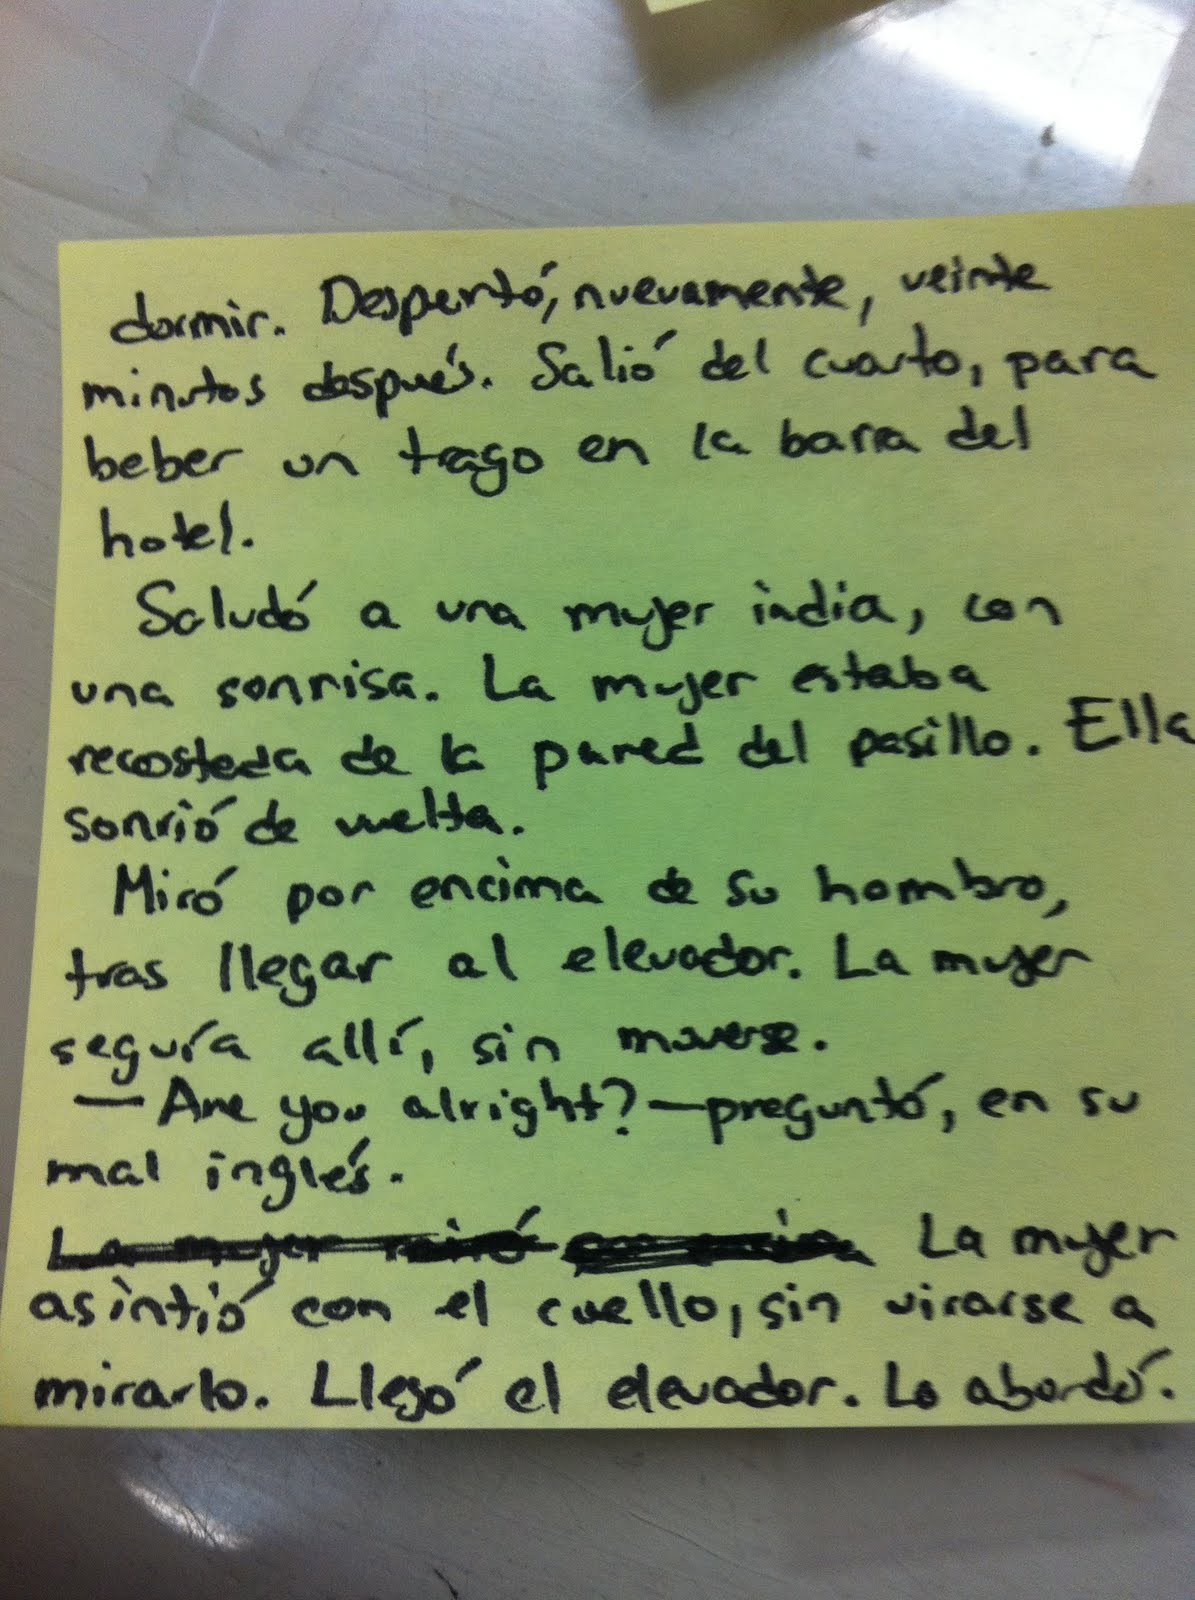 dormir. Despertó, nuevamente, veinte
minutos después. Salió del cuarto, para
beber un trago en la barra del
hotel.
Saludó a una mujer india, con
una sonrisa. La mujer estaba
recostada de la pared del pasillo. Ella
sonrió de vuelta.
Miró por encima de su hombro,
tras llegar al elevador. La mujer
seguía allí, sin moverse.
— Are you alright? — preguntó, en su
mal inglés.
La mujer miró La mujer
asintió con el cuello, sin virarse a
mirarlo. Llegó el elevador. Lo abordó.